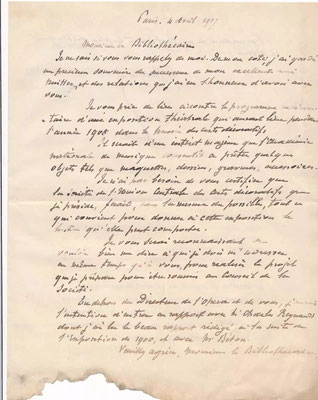 Paris, 4 Avril 1907
Monsieur le Bibliothécaire
Je ne sais si vous vous rappelez de moi. De mon côté, j'ai gardé
un précieux souvenir de mon excellent
et des relations que j'ai eu l'honneur d'avoir avec
vous.
Je vous prie de bien
d'une exposition théâtrale qui aurait lieu pendant
l'année 1908 dans le musée des arts décoratifs
Il serait d'un intérêt majeur que l'Académie
nationale de musique consentit à prêter quelques
objets tels que maquettes, dessins, gravures, accessoires.
Je n'ai pas besoin de vous certifier que
la société de l'Union centrale des arts décoratifs que
je préside, ferait, dans la mesure du possible, tout ce
qui convient pour donner à cette exposition le
lustre qu'elle peut comporter.
Je vous serai reconnaissant de
vouloir bien me dire à qui je dois m'adresser
en même temps qu'à vous, pour réaliser le projet
que je prépare pour être soumis au conseil de la
Société.
En dehors du Directeur de l'Opéra et de vous, j'aurai
l'intention d'entrer en rapport avec M. Charles Reynaud
dont j'ai lu le beau rapport rédigé à la suite de
l'Exposition de 1900, et avec Mr
Veuillez agréer, Monsieur le Bibliothécaire